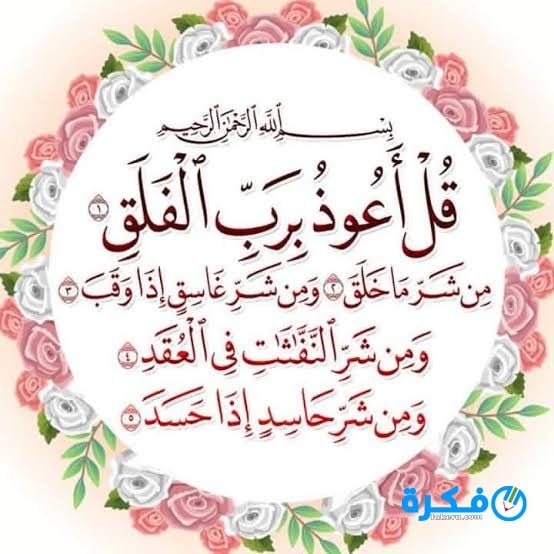 بِسْمِ ٱللَّهِ ٱلرَّحْمَٰنِ ٱلرَّحِيمِ
قُلْ أَعُوذُ بِرَبِّ ٱلْفَلَقِ ١
مِن شَرِّ مَا خَلَقَ ٢ وَمِن شَرِّ غَاسِقٍ إِذَا وَقَبَ ٣
وَمِن شَرِّ ٱلنَّفَّٰثَٰتِ فِي ٱلْعُقَدِ ٤
وَمِن شَرِّ حَاسِدٍ إِذَا حَسَدَ ٥
فكرة
fakera.com